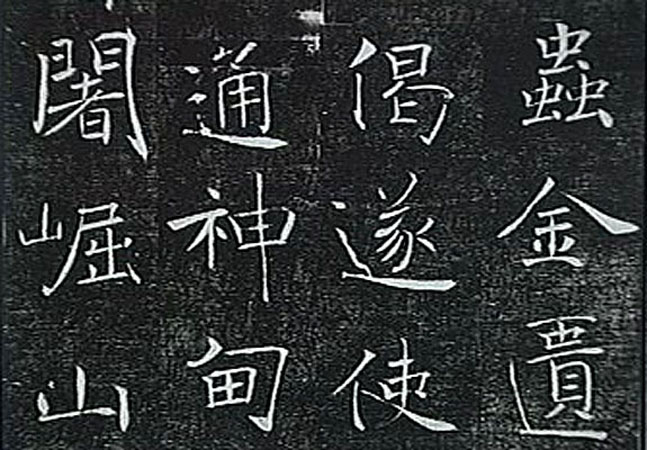 蟲金遺
偈遂使
通神甸
闍崛山